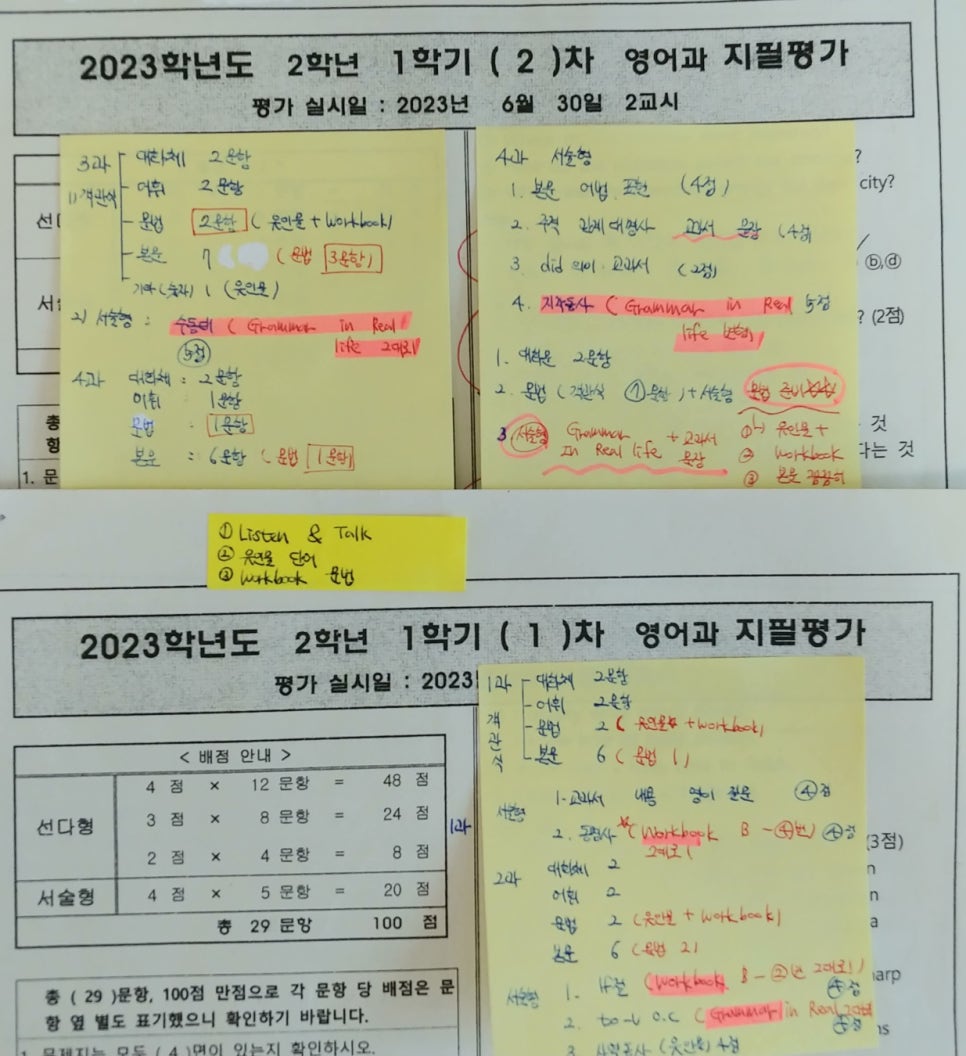 2023학년도 2학년 1학기 ( 2 )차 영어과 지필평가
평가 실시일 : 2023년 6월 30일 2교시
3과
1) 객관식
대화체 2문항
어휘 2문항
문법 2문항 ( 윳인물 + workbook)
본문 7 ( 문법 3문항)
기타 (숙어) 1 (윳인물)
2) 서술형 : 수동태 ( Grammar in Real
life 그대로)
5점
4과 대화체 : 2문항
어휘 : 1문항
문법 : 1문항
본문 : 6문항 ( 문법 1문항)
4과 서술형
1. 본문 어법 표현 (4점)
2. 주격 관계대명사 교과서 문장 (4점)
3. did 의미 교과서 (2점)
4. 지각동사 ( Grammar in Real 5점
life 변형)
1. 대화문 2문항
2. 문법 ( 객관식 7문항) + 서술형 문법 준비
3 서술형 Grammar in Real life + 교과서 문장
① 윳인물 +
② workbook
③ 본문 굉장히
선
서술
총
항
1. 문
?
city?
ⓑ,ⓓ
? (2점)
것
다는 것
① Listen & Talk
② 윳인물 단어
③ workbook 문법
2023학년도 2학년 1학기 ( 1 )차 영어과 지필평가
평가 실시일 : 2023
< 배점 안내 >
선다형
4 점 × 12 문항 = 48 점
3 점 × 8 문항 = 24 점
2 점 × 4 문항 = 8 점
서술형 4 점 × 5 문항 = 20 점
총 29 문항 100 점
총 ( 29 )문항, 100점 만점으로 각 문항 당 배점은 문
항 옆 별도 표기했으니 확인하기 바랍니다.
1. 문제지는 모두 ( 4 )면이 있는지 확인하시오.
1과
객관식
대화체 2문항
어휘 2문항
문법 2 ( 윳인물 + workbook)
본문 6 ( 문법 1)
1과
서술형
1. 교과서 내용 영어 질문 ④점
2. (Workbook B - ④번) ④점
그대로)
2과 대화체 2
어휘 2
문법 2 (윳인물 + workbook)
본문 6 (문법 2)
서술형 1. (Workbook B - ②번 그대로) ④점
2. to-v o.c (Grammar in Real 그대로
④점
3. 사역동사 (윳인물) 4점
(3점)
n
n
a
harp
ns